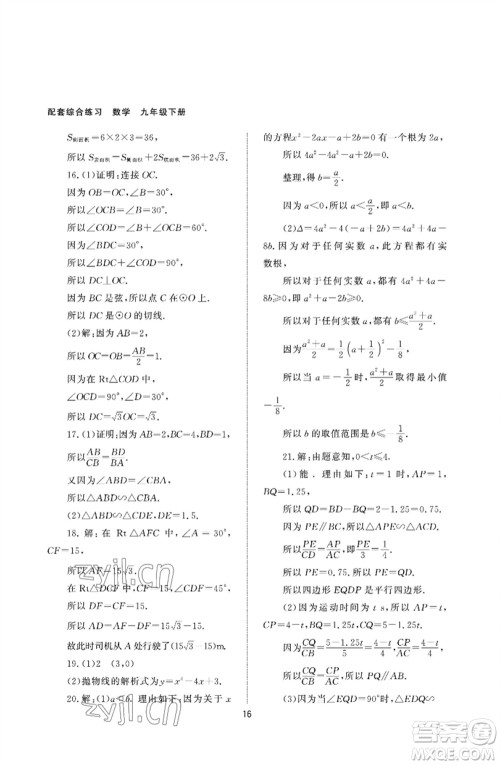 配套综合练习 数学 九年级下册
S侧面积=6×2×3=36,
所以 S表面积=S侧面积+2S底面积=36+2√3.
16.(1)证明:连接 OC.
因为 OB=OC,∠B=30°,
所以∠OCB=∠B=30°.
所以∠COD=∠B+∠OCB=60°.
因为∠BDC=30°,
所以∠BDC+∠COD=90°.
所以 DC⊥OC.
因为 BC 是弦,所以点 C 在⊙O 上.
所以 DC 是⊙O 的切线.
(2)解:因为 AB=2,
所以 OC=OB=AB/2=1.
因为在 Rt△COD 中,∠COD=60°,
∠OCD=90°,
所以 DC=√3 OC=√3.
17.(1)证明:因为 AB=2,BC=4,BD=1,
所以 AB/CB=BD/BA.
又因为∠ABD=∠CBA,
所以△ABD∽△CBA.
(2)△ABD∽△CDE,DE=1.5.
18.解:在 Rt△AFC 中,∠A=30°,
CF=15,
所以 AF=15√3.
在 Rt△CDF 中,∠CDF=45°,
所以 DF=CF=15.
故此时司机从 A 行驶了(15√3-15)m.
19.(1)2 (3,0)
(2)抛物线的解析式为y=x²-4x+3.
20.解:(1)a<0.理由如下:因为关于 x
的方程x²-2ax-a+2b=0有两个相等的实数根,
所以 4a²-4(-a+2b)=0.
整理,得 b=
所以 a<0,所以 b<a/2.
(2)Δ=4a²-4(-a+2b)=4a²+4a-
8b.因为对于任何实数 a,此方程都有实
数根,
所以对于任何实数 a,都有4a²+4a-
8b≥0.
所以对于任何实数 a,都有 b≤(a²+a)/2.
因为(a²+a)/2=1/2(a+1/2)²-1/8,
所以当 a=-1/2时,(a²+a)/2取得最小值
-1/8.
所以 b 的取值范围是 b≤-1/8.
21.解:由题意知,0<t<4.
(1)能.理由如下:当 t=1 时,AP=1,
BQ=1.25,
所以 QD=BD-BQ=2-1.25=0.75.
因为 PE∥BC,所以△APE∽△ACD.
所以 PE/CD=AP/AC,即PE/3=1/4.
所以 PE=0.75.所以 PE=QD.
所以四边形 EQDP 是平行四边形.
(2)因为运动时间为 t s,AP=t,
BQ=1.25t,
所以 CQ/CB=(5-1.25t)/5=(4-t)/4,CP/AC=(4-t)/4.
所以 CQ/CB=CP/AC.所以 PQ∥AB.
(3)①当∠EQD=90°时,易得 EQ=
16
zyjl.cn
答案圈
MXQE.COM